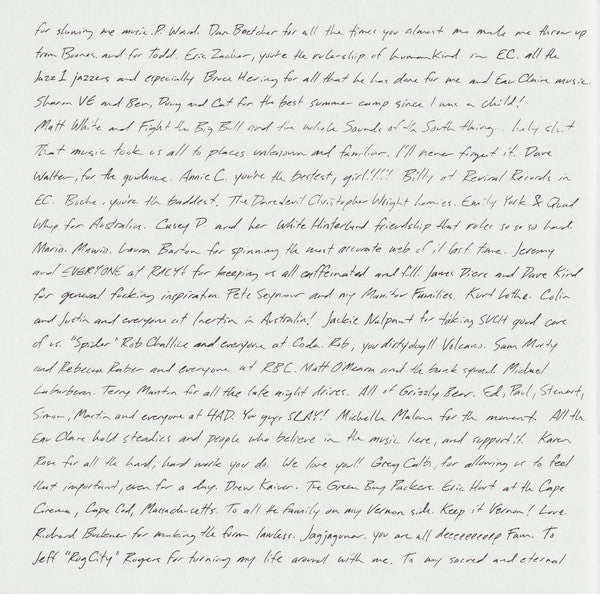 for showing me music. P. Ward. Dan Boettcher for all the times you almost me made me throw up
from Boones and for Todd. Eric Zacher, you're the ruler-ship of humankind in EC. all the
Jazz 1 jazzers and especially Bruce Hering for all that he has done for me and Eau Claire music.
Sharon VE and Ben, Doug and Cat for the best summer camp since I was a child!
Matt White and Fight the Big Bull and the whole Sounds of the South thing... holy shit.
That music took us all to places unknown and familiar. I'll never forget it. Dave
Walter, for the guidance. Annie C. you're the bestest, girl!!!!! Billy at Revival Records in
EC. Biche. you're the baddest. The Daredevil Christopher Wright homies. Emily York & Quad
Whip for Australia. Casey D. and her White Hinterland friendship that rules so so so hard.
Mario. Mawio. Laura Barton for spinning the most accurate web of it last time. Jeremy
and EVERYONE at RACY'S for keeping us all caffeinated and full. James Diers and Dave Kind
for general fucking inspiration. Pete Seymour and my Manitor Families. Kurt Lothe. Colin
and Justin and everyone at Inertia in Australia! Jackie Nalpant for taking SUCH good care
of us. "Spider" Rob Challice and everyone at Coda. Rob, you dirtydog!! Volcano. Sam Morty
and Rebecca Raber and everyone at RBC. Matt O'Meara and the bank squad. Michael
Laburbera. Terry Mantin for all the late night drives. All of Grizzly Bear. Ed, Paul, Stewart,
Simon, Martin and everyone at 4AD. You guys SLAY! Michelle Malone for the moment. All the
Eau Claire hold steadies and people who believe in the music here, and support it. Karen
Rose for all the hard, hard work you do. We love you!! Greg Calbi, for allowing us to feel
that important, even for a day. Drew Kaiser. The Green Bay Packers. Eric Hart at the Cape
Cinema, Cape Cod, Massachusetts. To all the family on my Vernon side. Keep it Vernon! Love.
Richard Buckner for making the form lawless. Jagjaguwar. you are all deeeeeeeeep Fam. To
Jeff "RogCity" Rogers for turning my life around with me. To my sacred and eternal